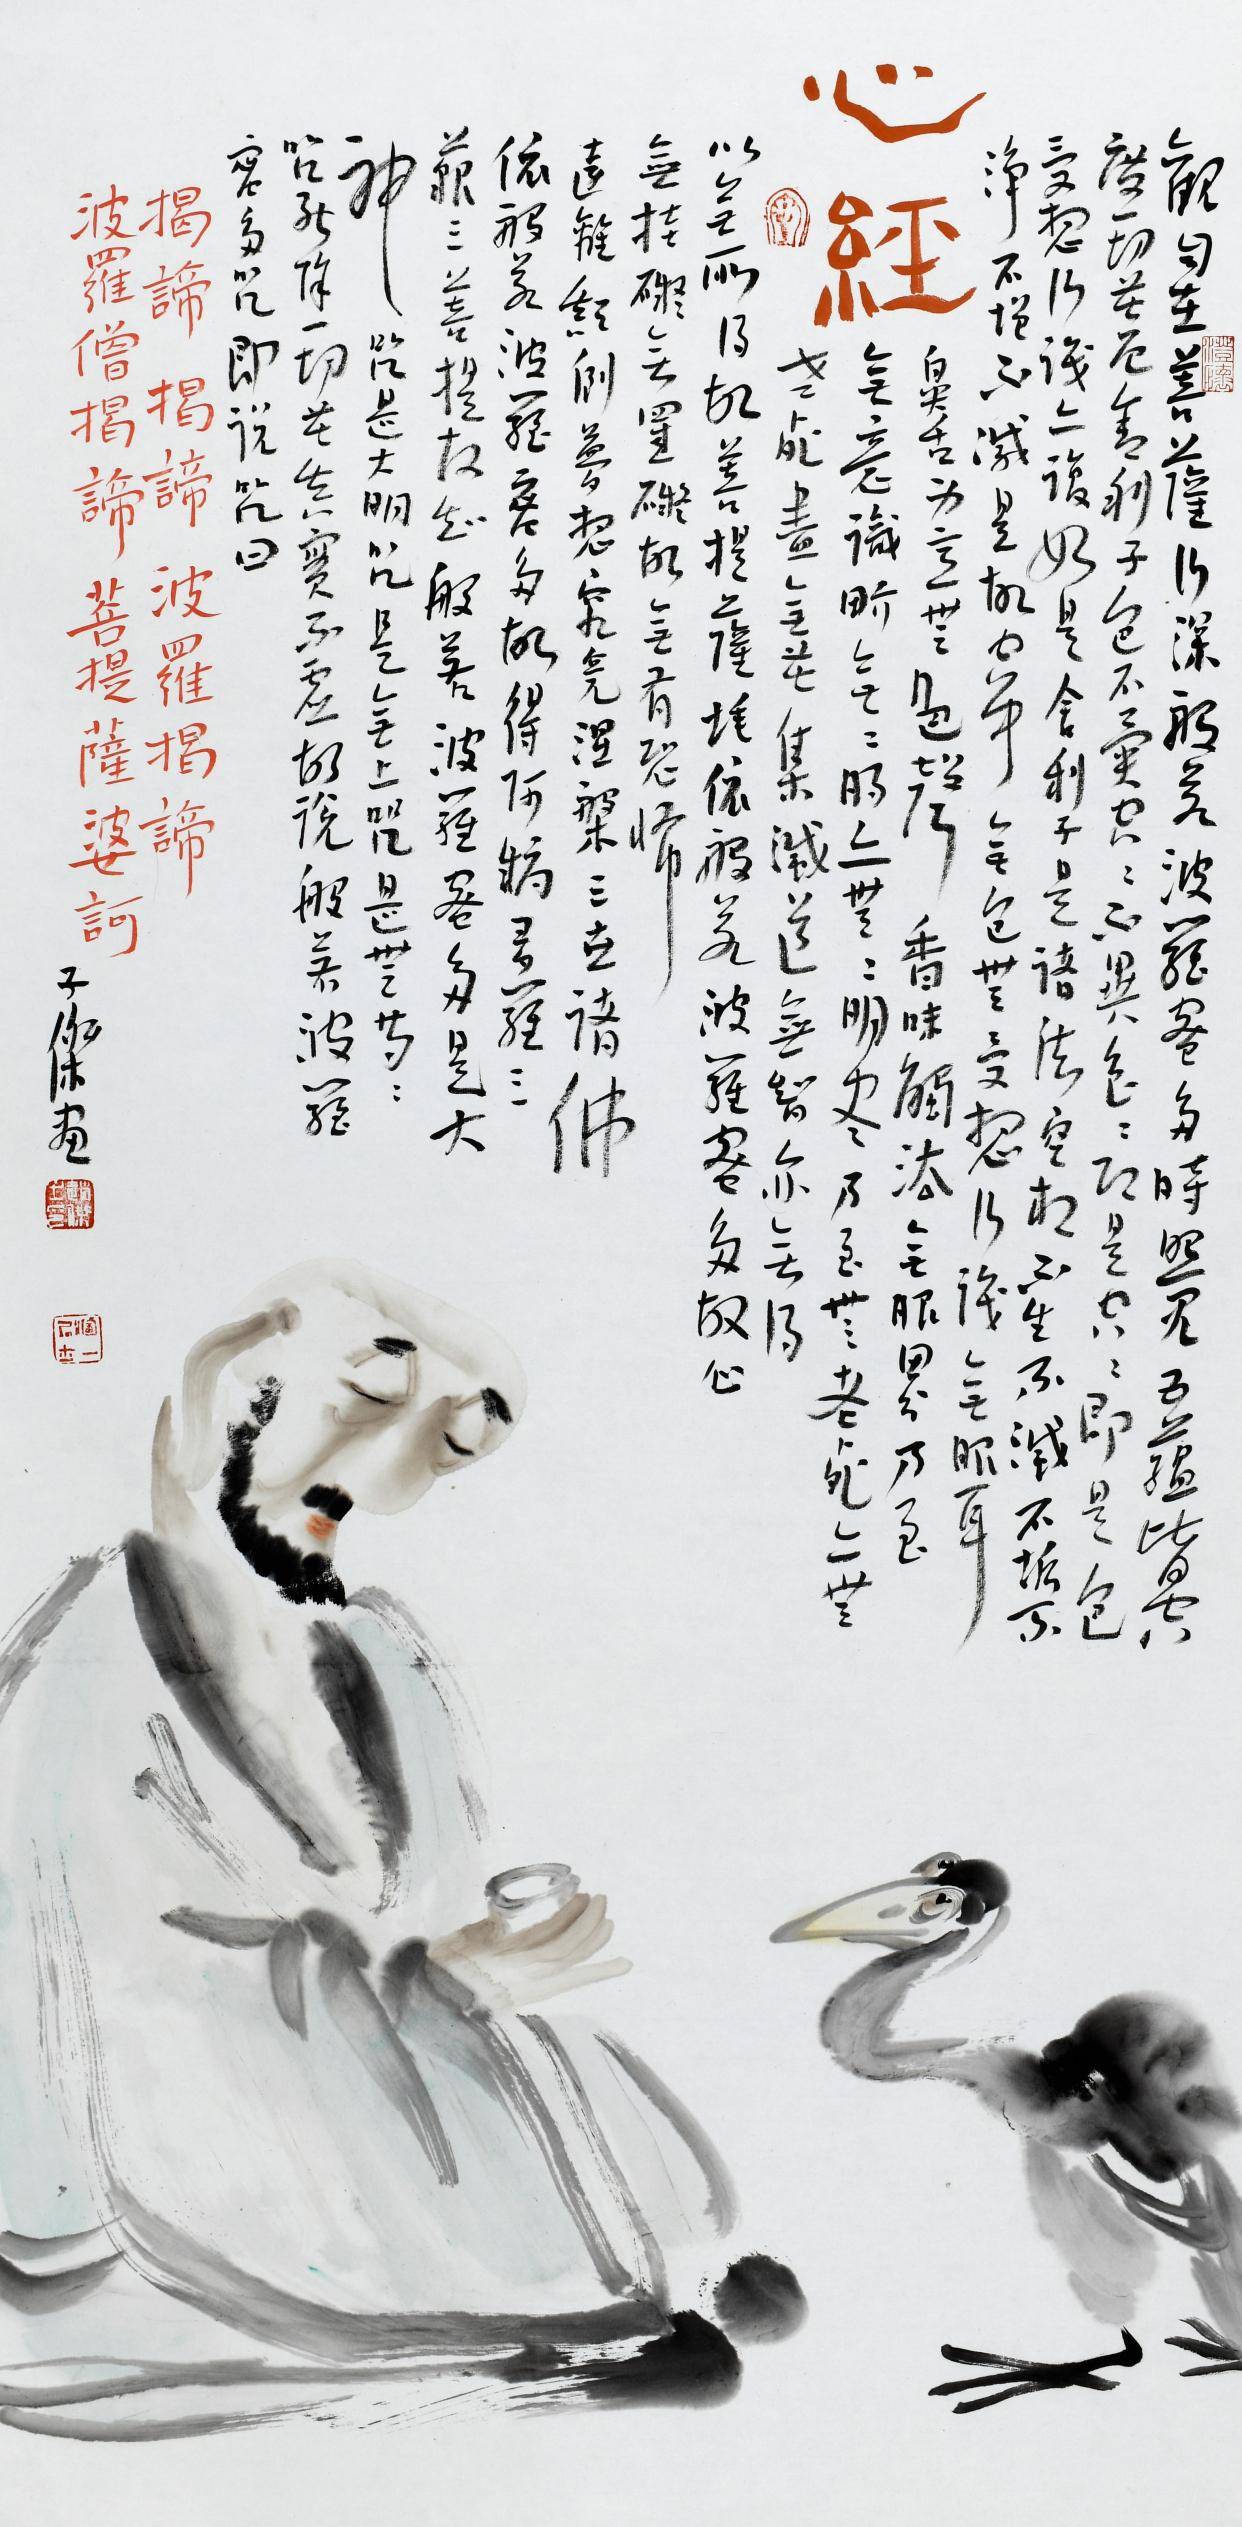 心經
觀自在菩薩行深般若波羅蜜多時照見五蘊皆空
度一切苦厄舍利子色不異空〻不異色〻即是空〻即是色
受想行識亦復如是舍利子是諸法空相不生不滅不垢不
淨不增不減是故空中無色無受想行識無眼耳
鼻舌身意無色聲香味觸法無眼界乃至
無意識界無〻明亦無〻明盡乃至無老死亦無
老死盡無苦集滅道無智亦無得
以無所得故菩提薩埵依般若波羅蜜多故心
無挂礙無罣礙故無有恐怖
遠離顛倒夢想究竟涅槃三世諸佛
依般若波羅蜜多故得阿耨多羅三
藐三菩提故知般若波羅蜜多是大
神咒是大明咒是無上咒是無等〻
咒能除一切苦真實不虛故說般若波羅
密多咒即說咒曰
揭諦揭諦波羅揭諦
波羅僧揭諦菩提薩婆訶
子傑畫